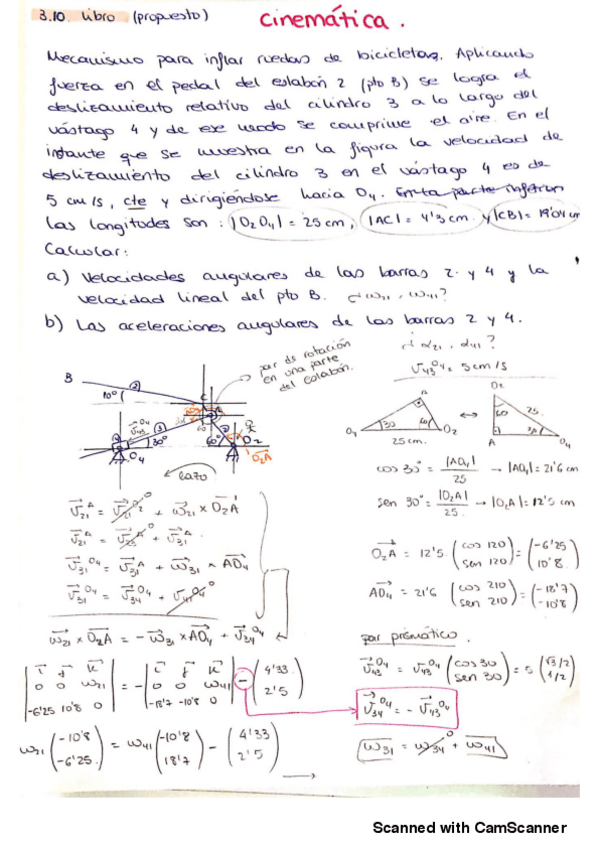 3.10. Libro (propuesto)
Cinemática.
Mecanismo para inflar ruedas de bicicletas. Aplicando
fuerza en el pedal del eslabón 2 (pto B) se logra el
deslizamiento relativo del cilindro 3 a lo largo del
vástago 4 y de ese modo se comprime el aire. En el
instante que se muestra en la figura la velocidad de
deslizamiento del cilindro 3 en el vástago 4 es de
5 cm/s, cte y dirigiéndose hacia O4.
las longitudes son: |O2O4| = 25 cm, |AC| = 4'3 cm. y |CB| = 19'04 cm
Calcular:
a) Velocidades angulares de las barras 2 y 4 y la
velocidad lineal del pto B. ¿ω21, ω41?
b) Las aceleraciones angulares de las barras 2 y 4.
¿α21, α41?
par de rotación
en una parte
del eslabón.
B
10°
C
30°
60°
O4
O2
O2A
lazo
V43^O4 = 5 cm/s
O4 30 60 O2
25 cm.
O2
60 25.
A O4
cos 30° = |AO4|/25 → |AO4| = 21'6 cm
sen 30° = |O2A|/25. → |O2A| = 12'5 cm
V21^A = V21^O2 + ω21 × O2A
V21^A = V23^A + V31^A
V31^O4 = V31^A + ω31 × AO4
V31^O4 = V34^O4 + V41^O4
ω21 × O2A = - ω31 × AO4 + V34^O4
O2A = 12'5 (cos 120 sen 120) = (-6'25 10'8)
AO4 = 21'6 (cos 210 sen 210) = (-18'7 -10'8)
par prismático.
| i j k 0 0 ω21 -6'25 10'8 0 | = - | i j k 0 0 ω41 -18'7 -10'8 0 | - (4'33 2'5)
V43^O4 = V43^O4 (cos 30 sen 30) = 5 (√3/2 1/2)
V34^O4 = - V43^O4
ω21 (-10'8 -6'25) = ω41 (-10'8 18'7) - (4'33 2'5)
ω31 = ω34 + ω41
Scanned with CamScanner